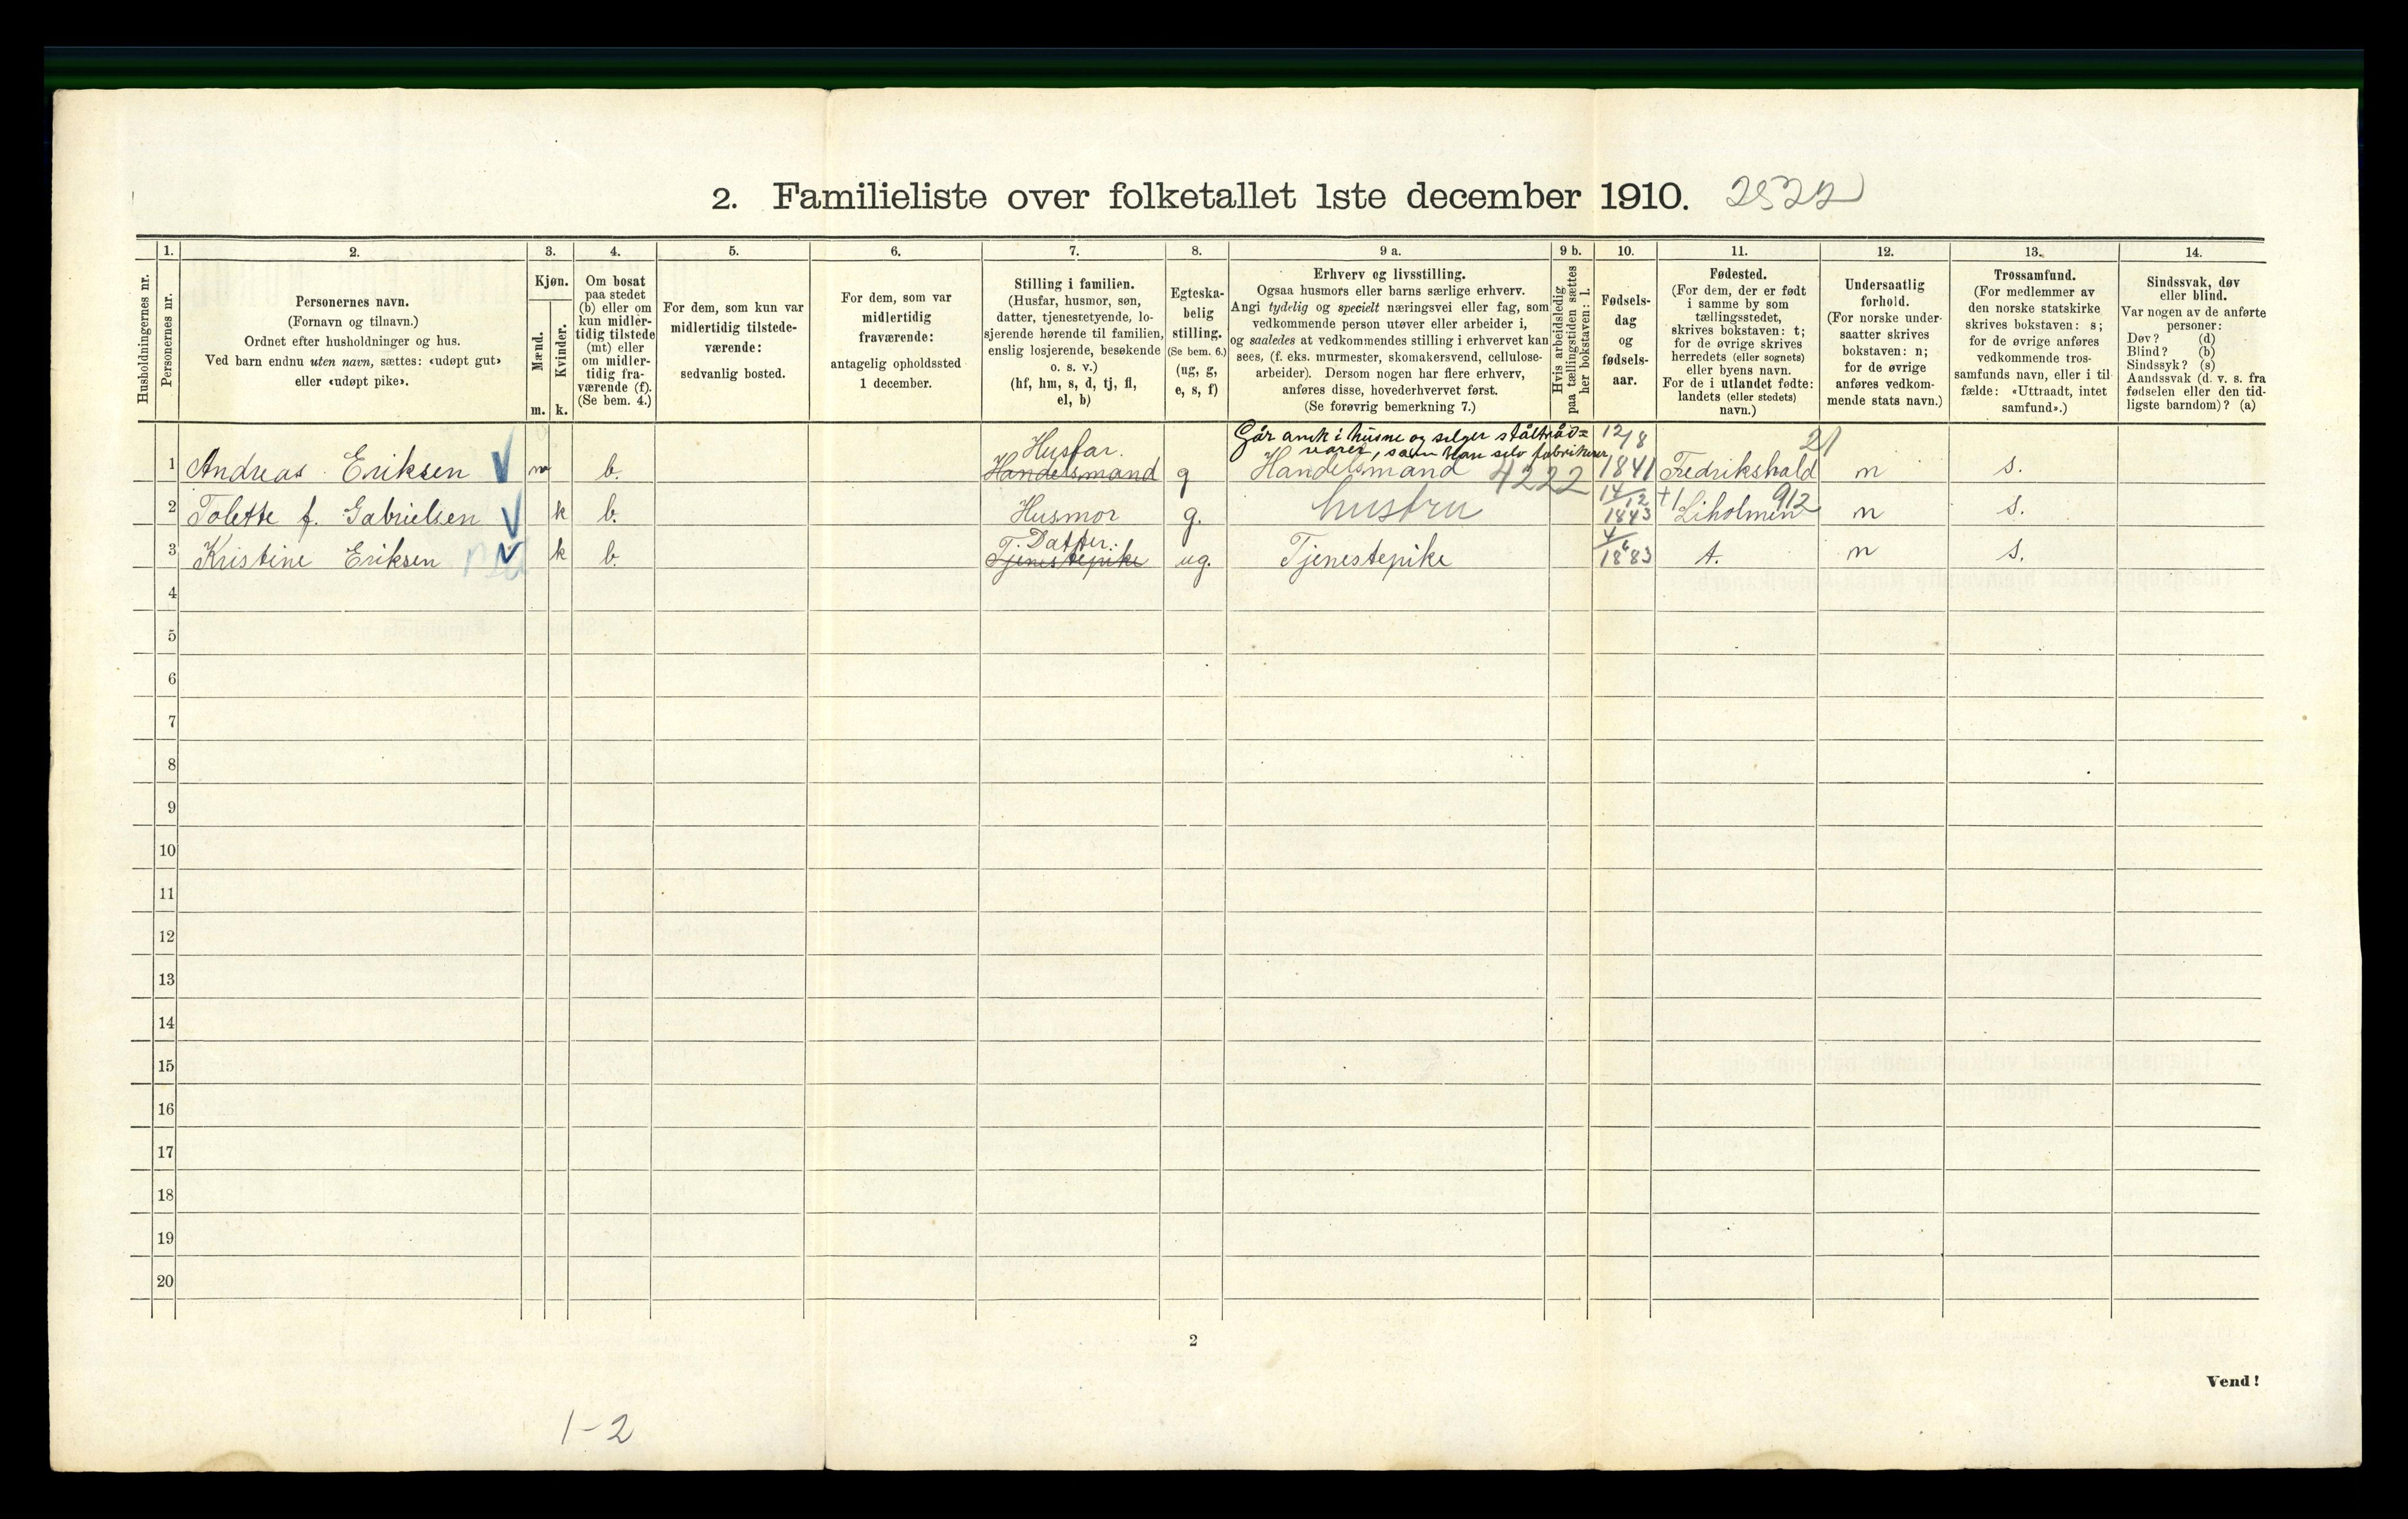 2. Familieliste over folketallet 1ste december 1910. 2522
Husholdningernes nr.
1.
Personernes nr.
2.
Personernes navn.
(Fornavn og tilnavn.)
Ordnet efter husholdninger og hus.
Ved barn endnu uten navn, sættes: «udøpt gut»
eller «udøpt pike».
3.
Kjøn.
Mænd.
Kvinder.
m. k.
4.
Om bosat
paa stedet
(b) eller om
kun midler-
tidig tilstede
(mt) eller
om midler-
tidig fra-
værende (f).
(Se bem. 4.)
5.
For dem, som kun var
midlertidig tilstede-
værende:
sedvanlig bosted.
6.
For dem, som var
midlertidig
fraværende:
antagelig opholdssted
1 december.
7.
Stilling i familien.
(Husfar, husmor, søn,
datter, tjenestetyende, lo-
sjerende hørende til familien,
enslig losjerende, besøkende
o. s. v.)
(hf, hm, s, d, tj, fl,
el, b)
8.
Egteska-
belig
stilling.
(Se bem. 6.)
(ug, g,
e, s, f)
9 a.
Erhverv og livsstilling.
Ogsaa husmors eller barns særlige erhverv.
Angi tydelig og specielt næringsvei eller fag, som
vedkommende person utøver eller arbeider i,
og saaledes at vedkommendes stilling i erhvervet kan
sees, (f. eks. murmester, skomakersvend, cellulose-
arbeider). Dersom nogen har flere erhverv,
anføres disse, hovederhvervet først.
(Se forøvrig bemerkning 7.)
9 b.
Hvis arbeidsledig
paa tællingstiden sættes
her bokstaven: l.
10.
Fødsels-
dag
og
fødsels-
aar.
11.
Fødested.
(For dem, der er født
i samme by som
tællingsstedet,
skrives bokstaven: t;
for de øvrige skrives
herredets (eller sognets)
eller byens navn.
For de i utlandet fødte:
landets (eller stedets)
navn.)
12.
Undersaatlig
forhold.
(For norske under-
saatter skrives
bokstaven: n;
for de øvrige
anføres vedkom-
mende stats navn.)
13.
Trossamfund.
(For medlemmer av
den norske statskirke
skrives bokstaven: s;
for de øvrige anføres
vedkommende tros-
samfunds navn, eller i til-
fælde: «Uttraadt, intet
samfund».)
14.
Sindssvak, døv
eller blind.
Var nogen av de anførte
personer:
Døv? (d)
Blind? (b)
Sindssyk? (s)
Aandssvak (d. v. s. fra
fødselen eller den tid-
ligste barndom)? (a)
Husfar. Går omk i husne og selger ståltråd= 12/8 21
varer, som han selv fabrikerer,
1 Andreas Eriksen m b. Handelsmand g Handelsmand 4222 1841 Fredrikshald n s.
14/12 †1 912
2 Tolette f. Gabrielsen k b. Husmor g. hustru 1843 Liholmen n s.
Datter. 4/6
3 Kristine Eriksen k b. Tjenestepike ug. Tjenestepike 1883 t. n s.
4
5
6
7
8
9
10
11
12
13
14
15
16
17
18
19
20
2
Vend!
1-2